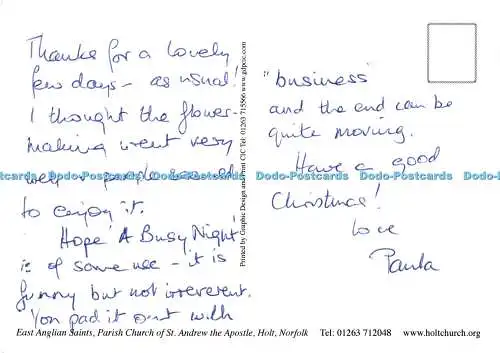 Thanks for a lovely
few days - as usual!
I thought the flower-
making went very
well & people seemed
to enjoy it.
Hope 'A Busy Night'
is of some use - it is
funny but not irreverent.
You pad it out with
"business"
and the end can be
quite moving.
Have a good
Christmas!
Love
Paula
Printed by Graphic Design and Print CIC Tel: 01263 715566 www.gdpcic.com
Dodo-Postcards Dodo-Postcards Dodo-Postcards Dodo-Postcards Dodo-Postcards
East Anglian Saints, Parish Church of St. Andrew the Apostle, Holt, Norfolk Tel: 01263 712048 www.holtchurch.org